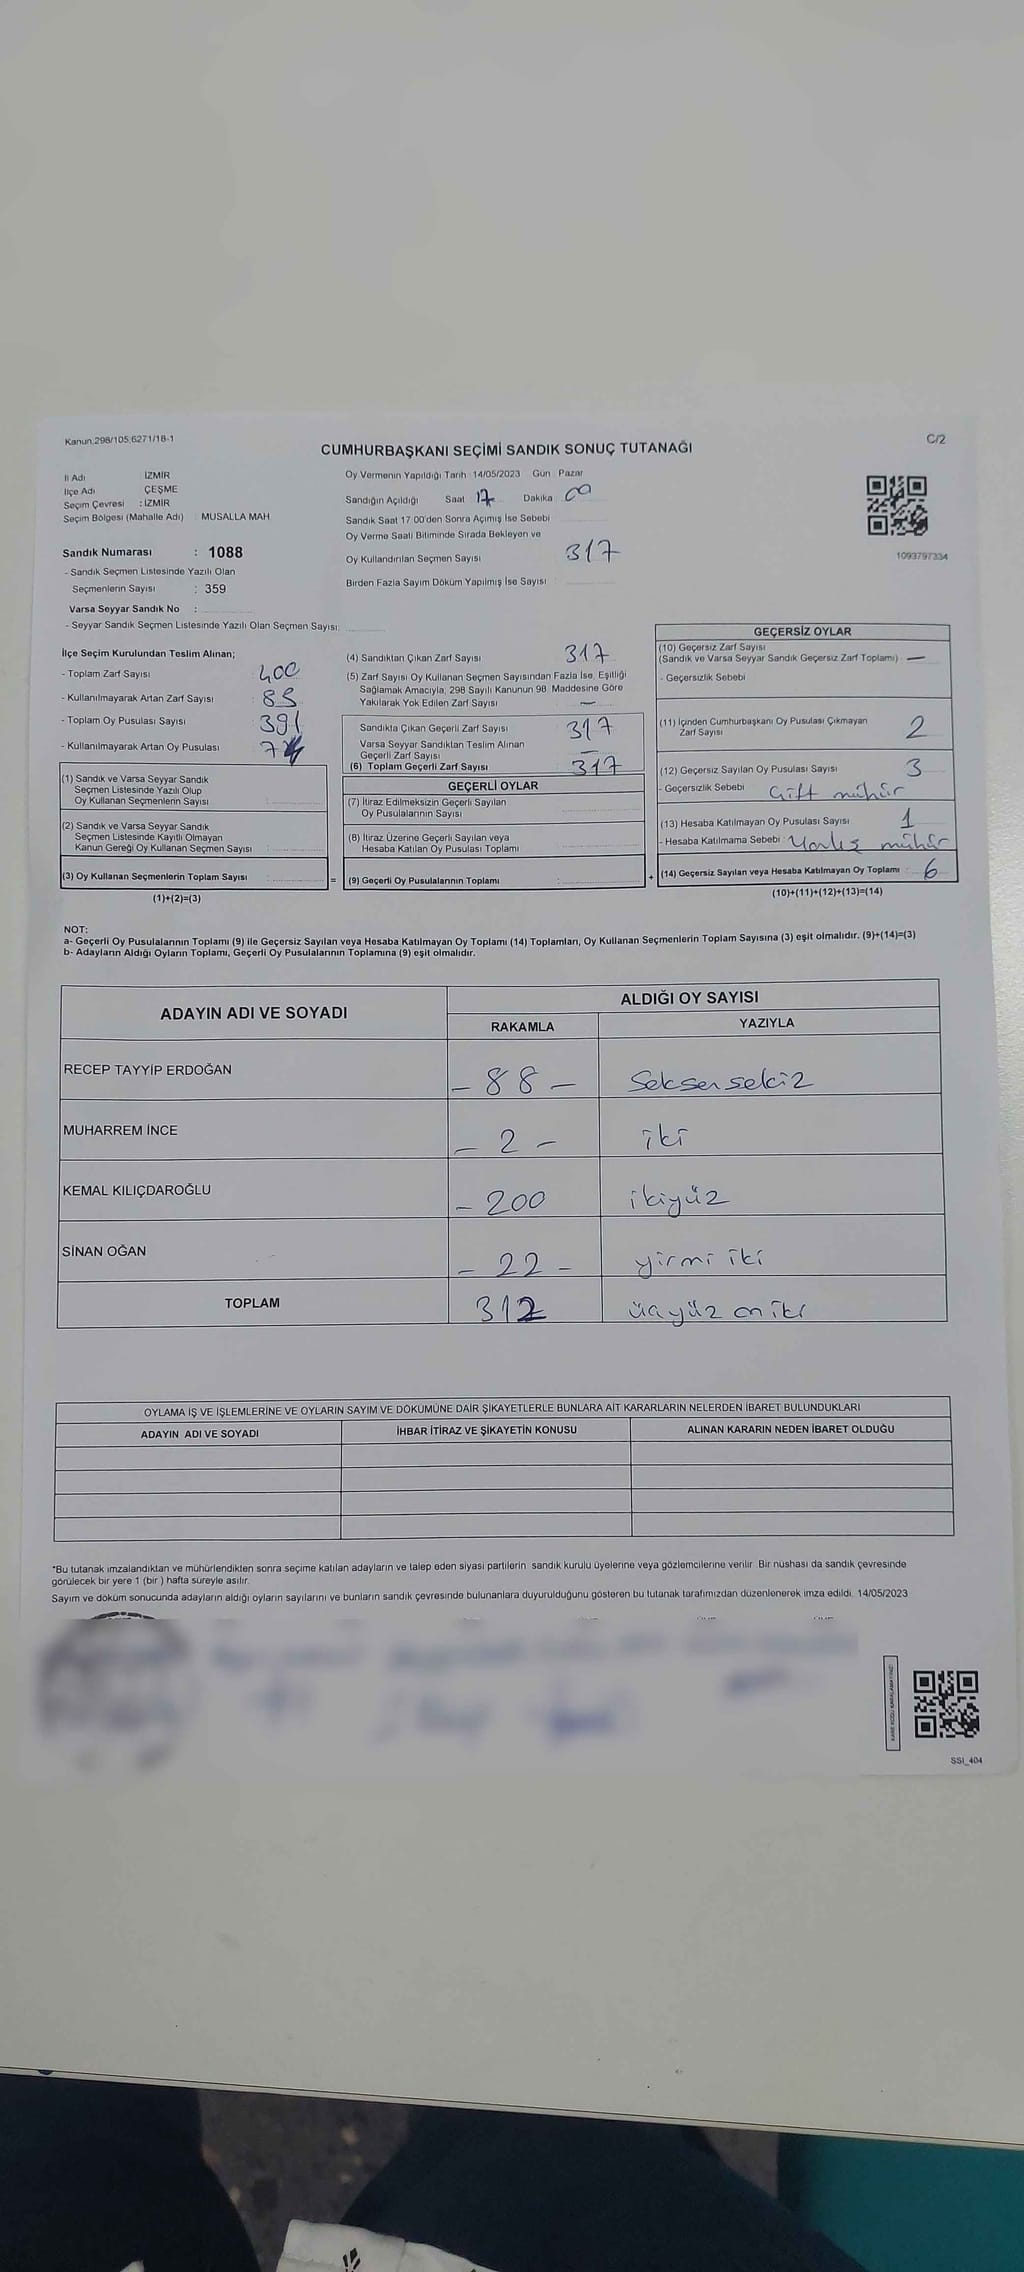 Kanun.298/105,6271/18-1
C/2
CUMHURBAŞKANI SEÇİMİ SANDIK SONUÇ TUTANAĞI
İl Adı İZMİR
İlçe Adı ÇEŞME
Seçim Çevresi : İZMİR
Seçim Bölgesi (Mahalle Adı) : MUSALLA MAH
Sandık Numarası : 1088
- Sandık Seçmen Listesinde Yazılı Olan
Seçmenlerin Sayısı : 359
Varsa Seyyar Sandık No :
- Seyyar Sandık Seçmen Listesinde Yazılı Olan Seçmen Sayısı:
Oy Vermenin Yapıldığı Tarih : 14/05/2023 Gün : Pazar
Sandığın Açıldığı Saat 17 Dakika 00
Sandık Saat 17:00'den Sonra Açılmış İse Sebebi
Oy Verme Saati Bitiminde Sırada Bekleyen ve
Oy Kullandırılan Seçmen Sayısı 317
Birden Fazla Sayım Döküm Yapılmış İse Sayısı
1093797334
İlçe Seçim Kurulundan Teslim Alınan;
- Toplam Zarf Sayısı : 400
- Kullanılmayarak Artan Zarf Sayısı : 83
- Toplam Oy Pusulası Sayısı 391
- Kullanılmayarak Artan Oy Pusulası : 74
(1) Sandık ve Varsa Seyyar Sandık
Seçmen Listesinde Yazılı Olup
Oy Kullanan Seçmenlerin Sayısı :
(2) Sandık ve Varsa Seyyar Sandık
Seçmen Listesinde Kayıtlı Olmayan
Kanun Gereği Oy Kullanan Seçmen Sayısı :
(3) Oy Kullanan Seçmenlerin Toplam Sayısı :
(1)+(2)=(3)
(4) Sandıktan Çıkan Zarf Sayısı 317
(5) Zarf Sayısı Oy Kullanan Seçmen Sayısından Fazla İse, Eşitliği
Sağlamak Amacıyla, 298 Sayılı Kanunun 98. Maddesine Göre
Yakılarak Yok Edilen Zarf Sayısı —
Sandıkta Çıkan Geçerli Zarf Sayısı 317
Varsa Seyyar Sandıktan Teslim Alınan
Geçerli Zarf Sayısı —
(6) Toplam Geçerli Zarf Sayısı 317
GEÇERLİ OYLAR
(7) İtiraz Edilmeksizin Geçerli Sayılan
Oy Pusulalarının Sayısı :
(8) İtiraz Üzerine Geçerli Sayılan veya
Hesaba Katılan Oy Pusulası Toplamı :
= (9) Geçerli Oy Pusulalarının Toplamı :
GEÇERSİZ OYLAR
(10) Geçersiz Zarf Sayısı
(Sandık ve Varsa Seyyar Sandık Geçersiz Zarf Toplamı) —
- Geçersizlik Sebebi
(11) İçinden Cumhurbaşkanı Oy Pusulası Çıkmayan
Zarf Sayısı 2
(12) Geçersiz Sayılan Oy Pusulası Sayısı 3
- Geçersizlik Sebebi Çift mühür
(13) Hesaba Katılmayan Oy Pusulası Sayısı 1
- Hesaba Katılmama Sebebi Yanlış mühür
+ (14) Geçersiz Sayılan veya Hesaba Katılmayan Oy Toplamı : 6
(10)+(11)+(12)+(13)=(14)
NOT:
a- Geçerli Oy Pusulalarının Toplamı (9) ile Geçersiz Sayılan veya Hesaba Katılmayan Oy Toplamı (14) Toplamları, Oy Kullanan Seçmenlerin Toplam Sayısına (3) eşit olmalıdır. (9)+(14)=(3)
b- Adayların Aldığı Oyların Toplamı, Geçerli Oy Pusulalarının Toplamına (9) eşit olmalıdır.
ADAYIN ADI VE SOYADI
ALDIĞI OY SAYISI
RAKAMLA YAZIYLA
RECEP TAYYİP ERDOĞAN – 88 – Seksensekiz
MUHARREM İNCE – 2 – iki
KEMAL KILIÇDAROĞLU – 200 ikiyüz
SİNAN OĞAN – 22 – yirmi iki
TOPLAM 312 üçyüz oniki
OYLAMA İŞ VE İŞLEMLERİNE VE OYLARIN SAYIM VE DÖKÜMÜNE DAİR ŞİKAYETLERLE BUNLARA AİT KARARLARIN NELERDEN İBARET BULUNDUKLARI
ADAYIN ADI VE SOYADI İHBAR İTİRAZ VE ŞİKAYETİN KONUSU ALINAN KARARIN NEDEN İBARET OLDUĞU
*Bu tutanak imzalandıktan ve mühürlendikten sonra seçime katılan adayların ve talep eden siyasi partilerin sandık kurulu üyelerine veya gözlemcilerine verilir. Bir nüshası da sandık çevresinde
görülecek bir yere 1 (bir ) hafta süreyle asılır.
Sayım ve döküm sonucunda adayların aldığı oyların sayılarını ve bunların sandık çevresinde bulunanlara duyurulduğunu gösteren bu tutanak tarafımızdan düzenlenerek imza edildi. 14/05/2023
SSI_404